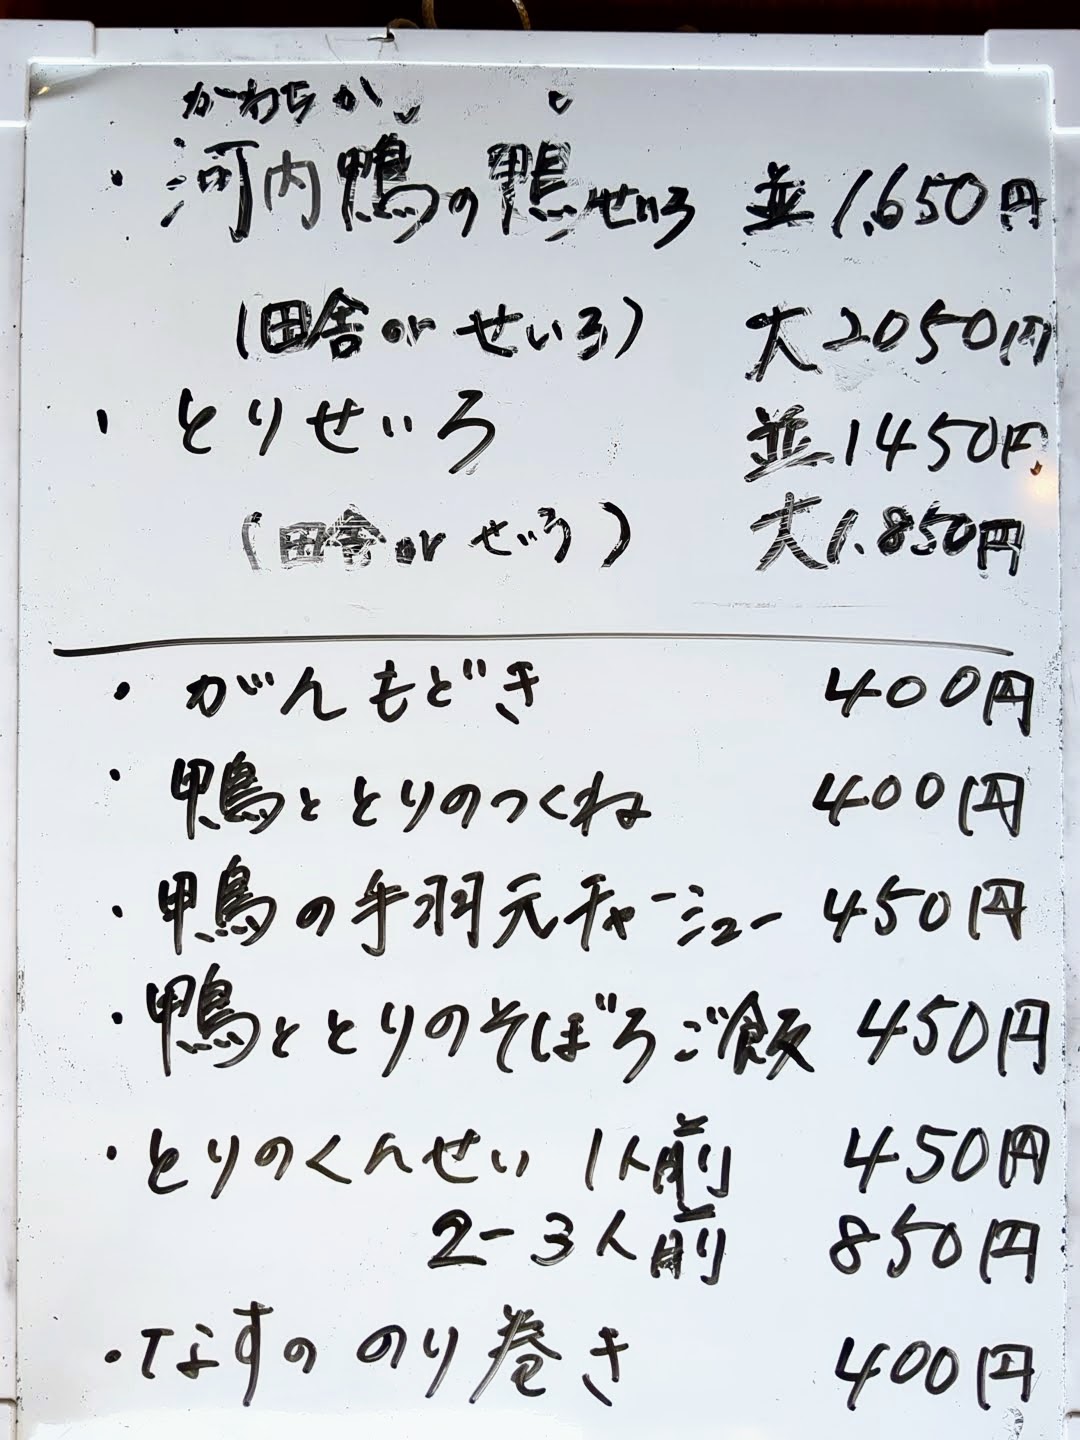 かわちかも
・河内鴨の鴨せいろ 並 1,650円
(田舎 or せいろ) 大 2050円
・とりせいろ 並 1450円
(田舎 or せいろ) 大 1.850円
・がんもどき 400円
・鴨ととりのつくね 400円
・鴨の手羽元チャーシュー 450円
・鴨ととりのそぼろご飯 450円
・とりのくんせい 1人前 450円
2-3人前 850円
・なすののり巻き 400円